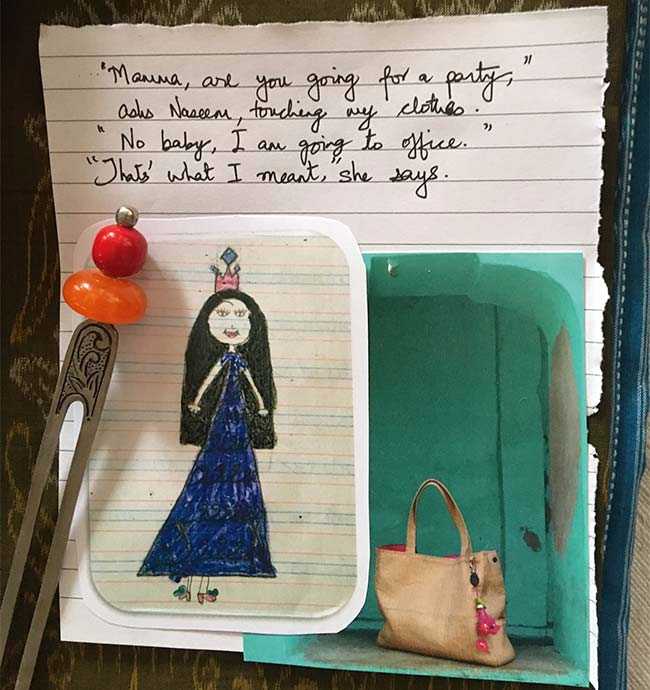 "Mamma, are you going for a party,"
asks Naseem, touching my clothes.
"No baby, I am going to office."
"Thats' what I meant," she says.